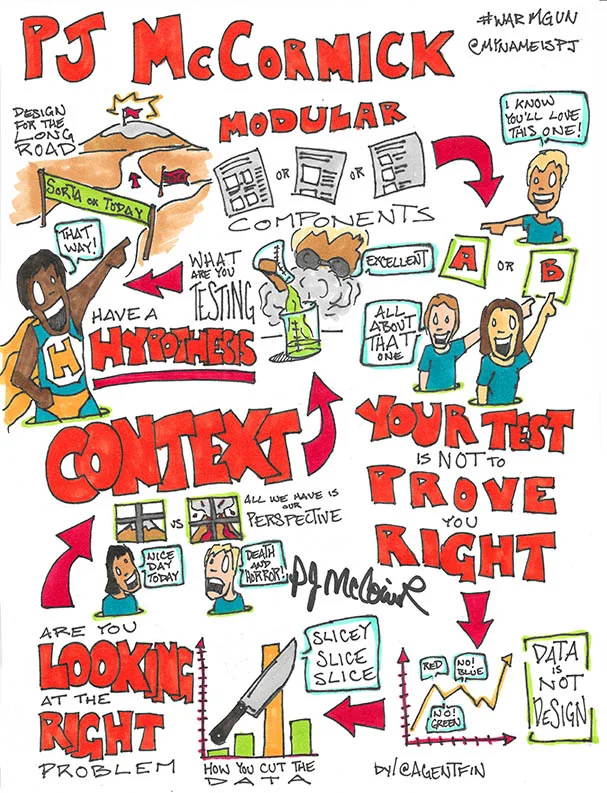 PJ McCORMICK
#WARMGUN
@MYNAMEISPJ
DESIGN
FOR THE
LONG
ROAD
SORTA OK TODAY
MODULAR
OR
OR
COMPONENTS
I KNOW
YOU'LL LOVE
THIS ONE!
A OR B
ALL
ABOUT
THAT
ONE
EXCELLENT
WHAT
ARE YOU
TESTING
THAT
WAY!
H
HAVE A
HYPOTHESIS
YOUR TEST
IS NOT TO
PROVE
YOU
RIGHT
CONTEXT
VS
ALL WE HAVE IS
OUR
PERSPECTIVE
NICE
DAY
TODAY
DEATH
AND
HORROR!
PJ McCormick
ARE YOU
LOOKING
AT THE
RIGHT
PROBLEM
SLICEY
SLICE
SLICE
HOW YOU CUT THE
DATA
RED
NO!
BLUE
NO!
GREEN
DATA
IS
NOT
DESIGN
by/@AGENTFIN